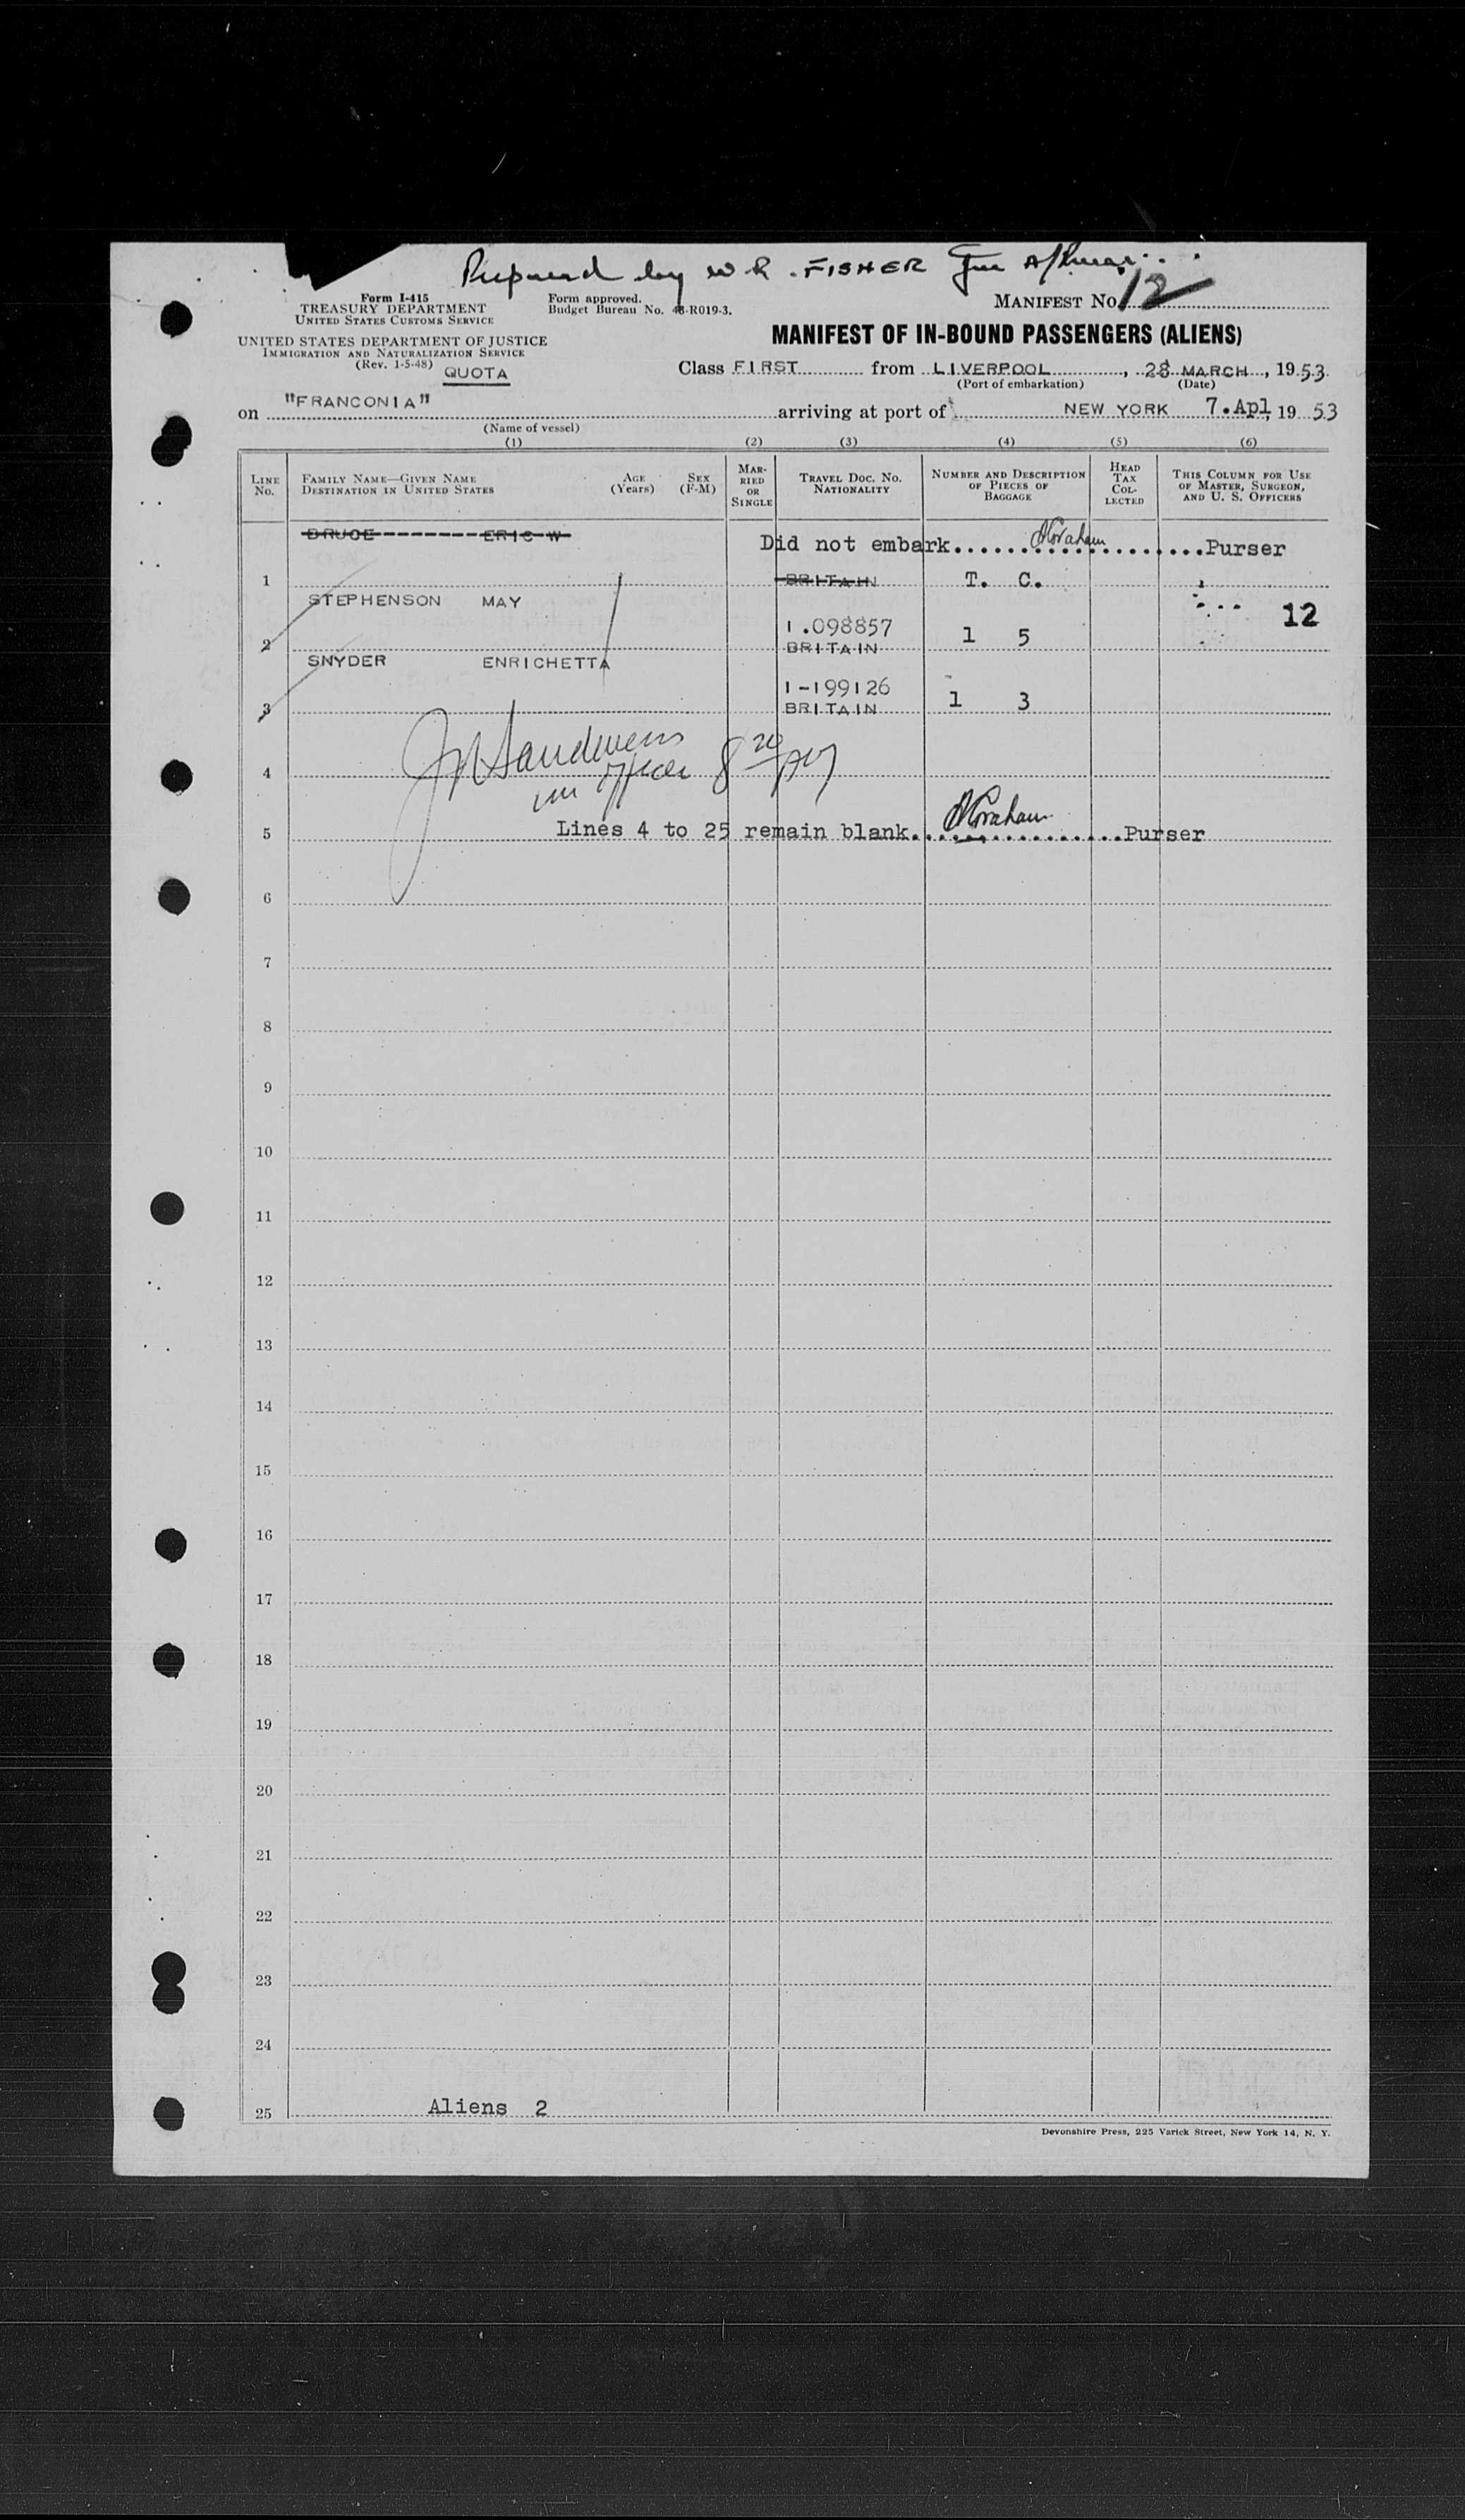 Prepared by W R. FISHER
Form I-415
TREASURY DEPARTMENT
UNITED STATES CUSTOMS SERVICE
Form approved.
Budget Bureau No. 43-R019-3.
MANIFEST NO. 12
UNITED STATES DEPARTMENT OF JUSTICE
IMMIGRATION AND NATURALIZATION SERVICE
(Rev. 1-5-48)
QUOTA
MANIFEST OF IN-BOUND PASSENGERS (ALIENS)
Class FIRST from LIVERPOOL, 28 MARCH, 1953
(Port of embarkation) (Date)
on "FRANCONIA" arriving at port of NEW YORK 7.Apl 1953
(Name of vessel)
(1) (2) (3) (4) (5) (6)
LINE NO.
FAMILY NAME—GIVEN NAME
DESTINATION IN UNITED STATES
AGE (Years)
SEX (F-M)
MARRIED OR SINGLE
TRAVEL DOC. NO.
NATIONALITY
NUMBER AND DESCRIPTION OF PIECES OF BAGGAGE
HEAD TAX COLLECTED
THIS COLUMN FOR USE OF MASTER, SURGEON, AND U. S. OFFICERS
BRUCE--------ERIC W
Did not embark...... ..........Purser
1 BRITAIN T. C.
STEPHENSON MAY
12
1.098857
2 BRITAIN 1 5
SNYDER ENRICHETTA
1-199126
3 BRITAIN 1 3
4
Lines 4 to 25 remain blank.................Purser
5
6
7
8
9
10
11
12
13
14
15
16
17
18
19
20
21
22
23
24
25 Aliens 2
Devonshire Press, 225 Varick Street, New York 14, N. Y.